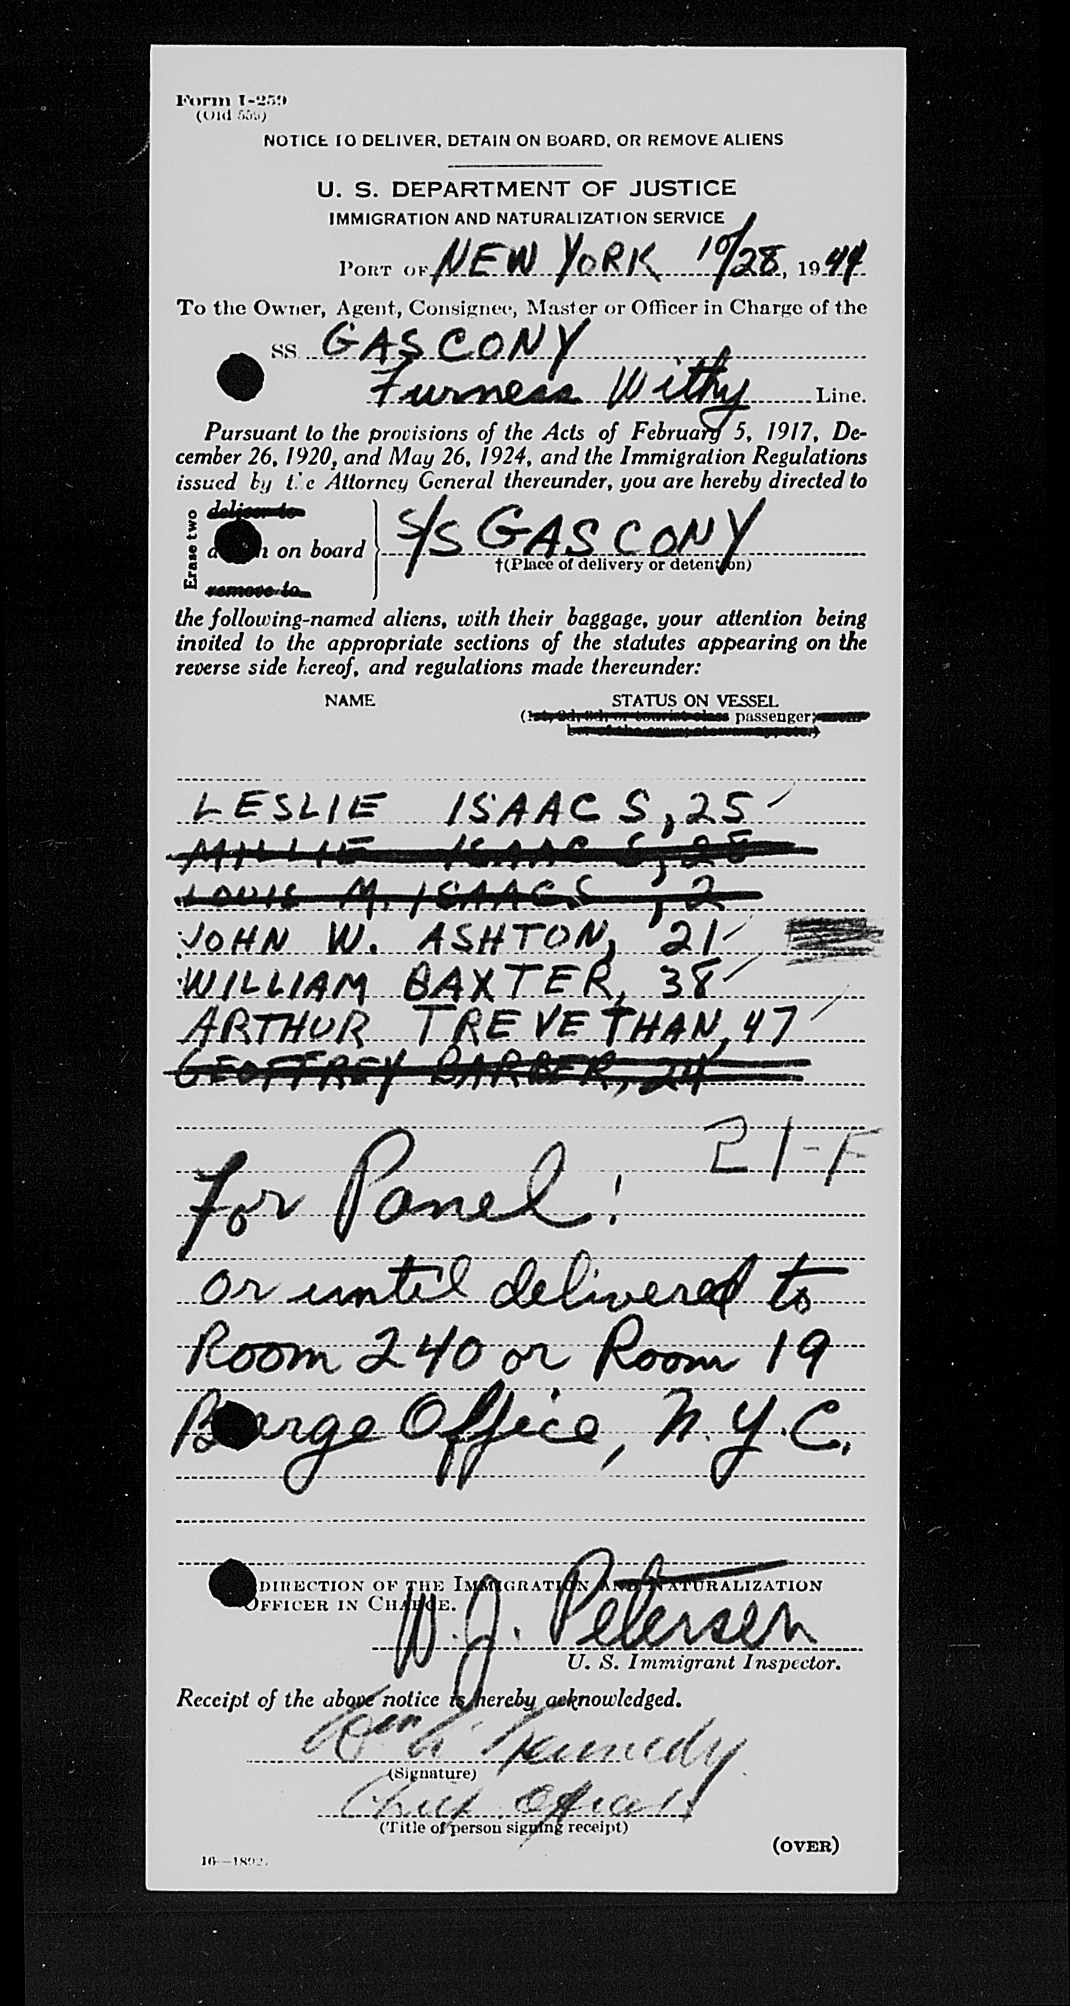 Form I-259
(Old 555)
NOTICE TO DELIVER, DETAIN ON BOARD, OR REMOVE ALIENS
U. S. DEPARTMENT OF JUSTICE
IMMIGRATION AND NATURALIZATION SERVICE
PORT OF NEW YORK 10/28, 1944
To the Owner, Agent, Consignee, Master or Officer in Charge of the
SS GASCONY
Furness Withy Line.
Pursuant to the provisions of the Acts of February 5, 1917, De-
cember 26, 1920, and May 26, 1924, and the Immigration Regulations
issued by the Attorney General thereunder, you are hereby directed to
Erase two
deliver to
on board
remove to
S/S GASCONY
†(Place of delivery or detention)
the following-named aliens, with their baggage, your attention being
invited to the appropriate sections of the statutes appearing on the
reverse side hereof, and regulations made thereunder:
NAME STATUS ON VESSEL
(1st, 2d, 3d, or tourist class passenger;
LESLIE ISAACS, 25
MILLIE ISAACS, 28
LOUIS M. ISAACS, 2
JOHN W. ASHTON, 21
WILLIAM BAXTER, 38
ARTHUR TREVETHAN, 47
GEOFFREY BARBER, 24
21-F
For Panel!
or until delivered to
Room 240 or Room 19
Barge Office, N.Y.C.
DIRECTION OF THE IMMIGRATION AND NATURALIZATION
OFFICER IN CHARGE.
W. J. Petersen
U. S. Immigrant Inspector.
Receipt of the above notice is hereby acknowledged.
Kennedy
(Signature)
Chief
(Title of person signing receipt)
(OVER)